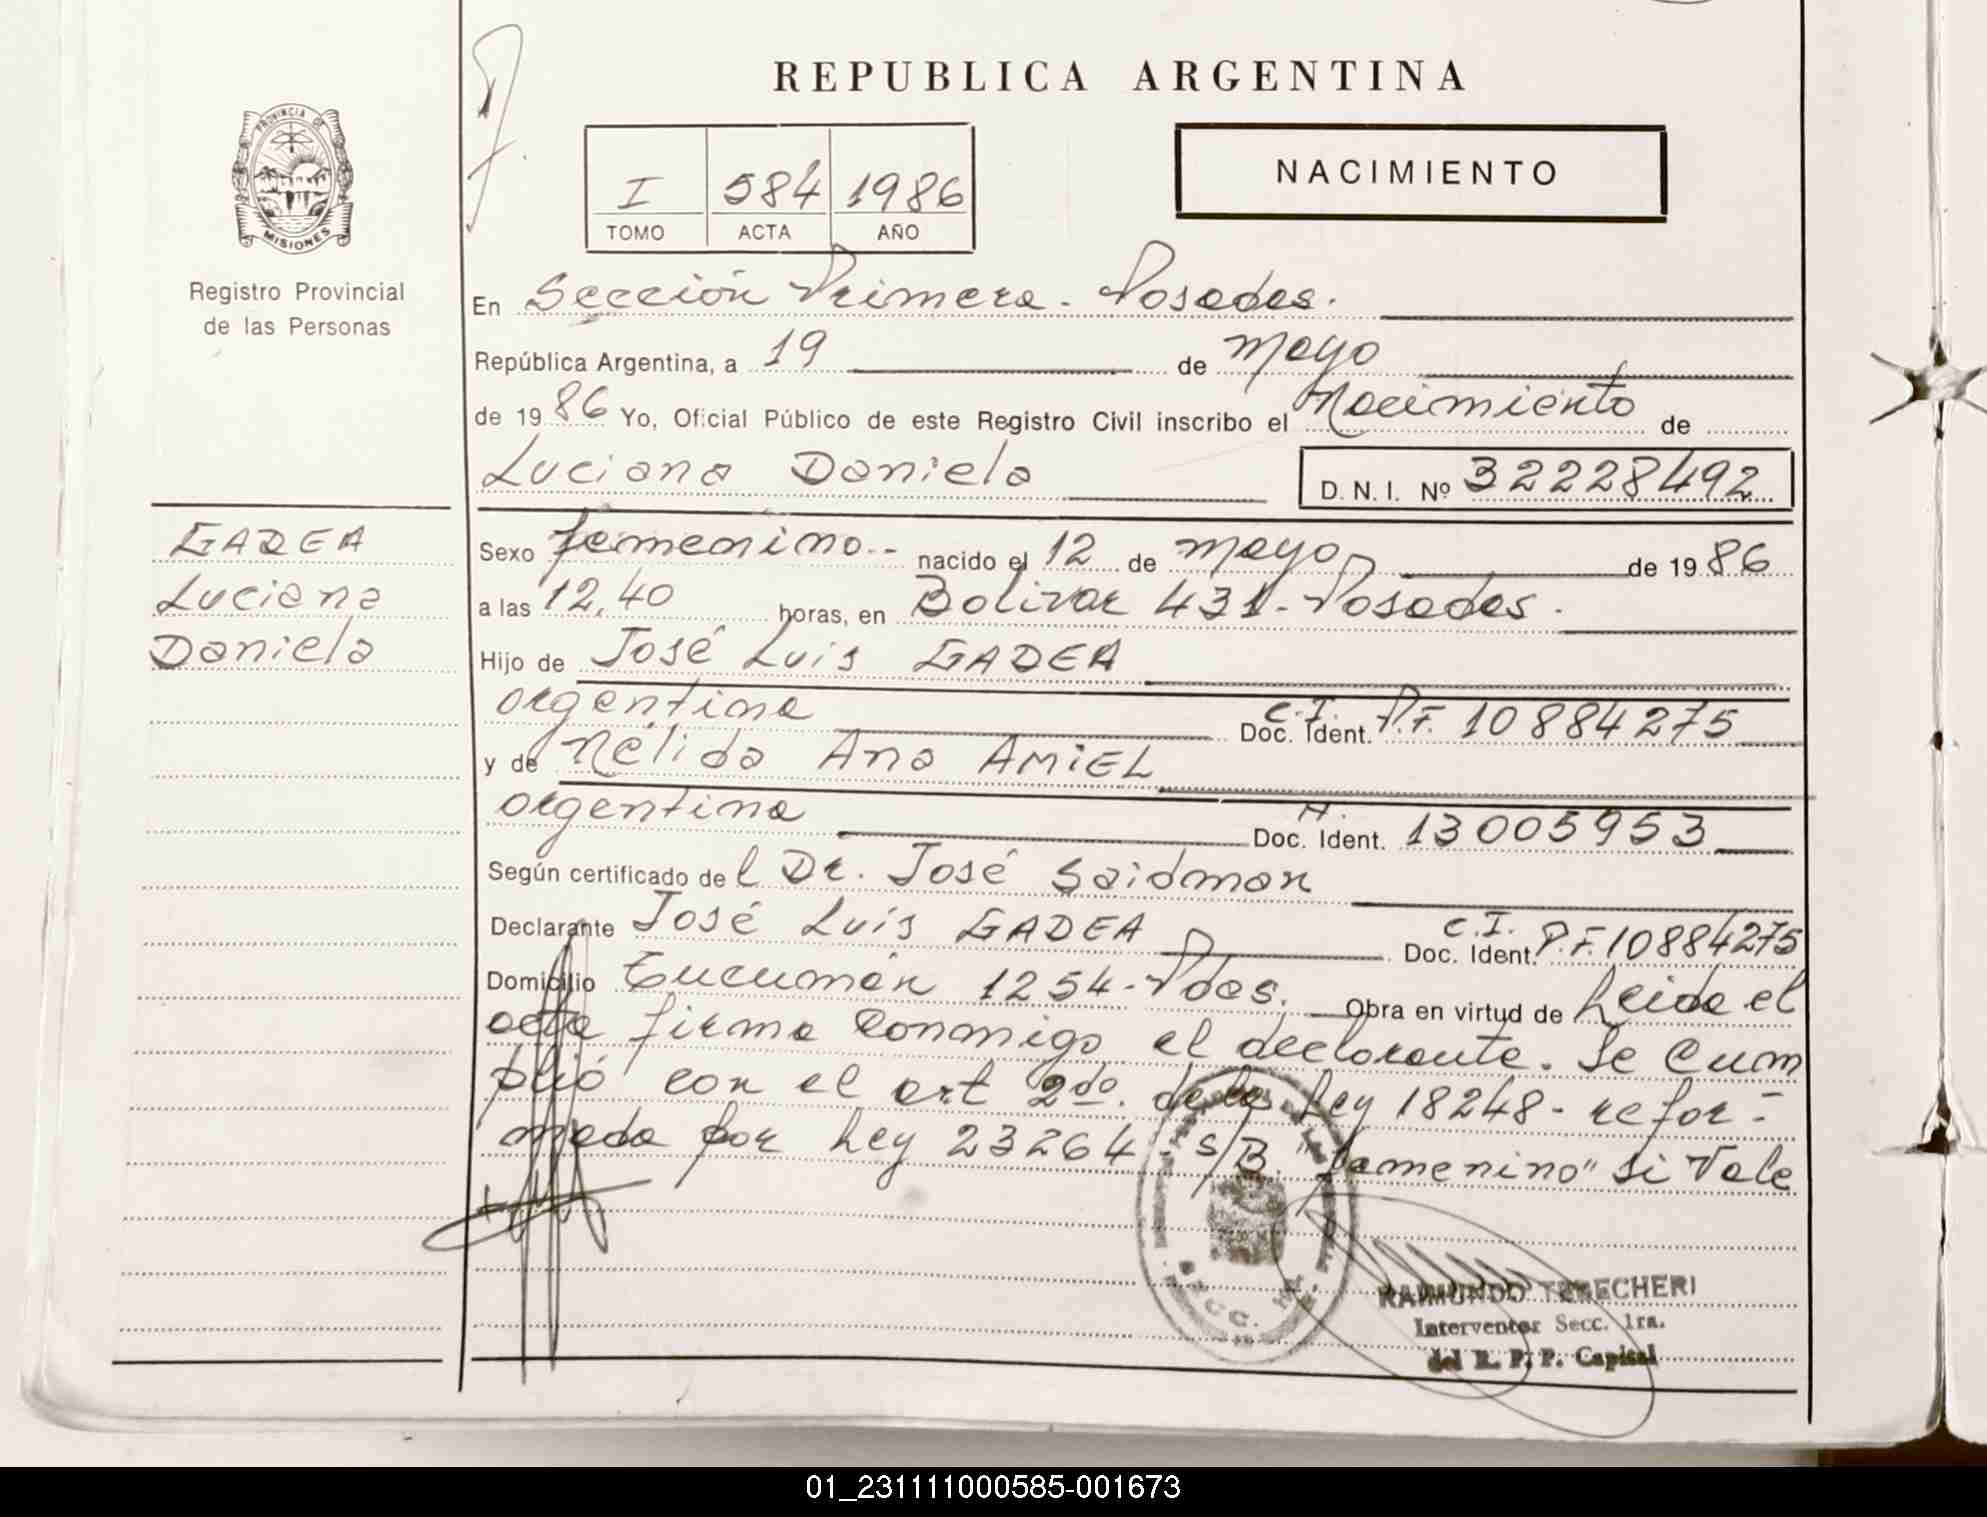 REPUBLICA ARGENTINA
PROVINCIA DE
MISIONES
Registro Provincial
de las Personas
I 584 1986
TOMO ACTA AÑO
NACIMIENTO
En Sección Primera - Posadas.
República Argentina, a 19 de mayo
de 19 86 Yo, Oficial Público de este Registro Civil inscribo el Nacimiento de
Luciana Daniela D. N. I. Nº 32228492
GADEA
Luciana
Daniela
Sexo femenino.- nacido el 12 de mayo de 19 86
a las 12,40 horas, en Bolivar 431 - Posadas.
Hijo de José Luis GADEA
argentina C.I. Doc. Ident. P.F. 10884275
y de Nélida Ana AMiEL
argentina Doc. Ident. 13005953
Según certificado de l Dr. José Saidman
Declarante José Luis GADEA C.I. Doc. Ident. P.F. 10884275
Domicilio Tucumán 1254 - Pdas. Obra en virtud de Leida el
acta firma conmigo el declarante. Se Cum
plió con el art 2do. de la Ley 18248 - refor-
mada por Ley 23264 - S/B. "femenino" Si Vale
RAIMUNDO TERECHERI
Interventor Secc. 1ra.
del R. P. P. Capital
01_231111000585-001673